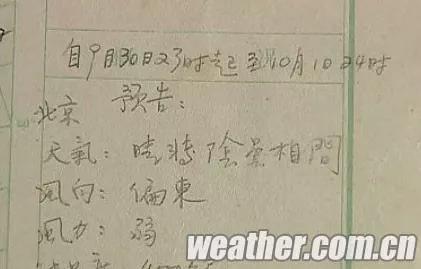 自9月30日23时起至10月1日24时
北京 预告：
天氣：晴轉陰曇相間
風向：偏東
風力：弱
weather.com.cn